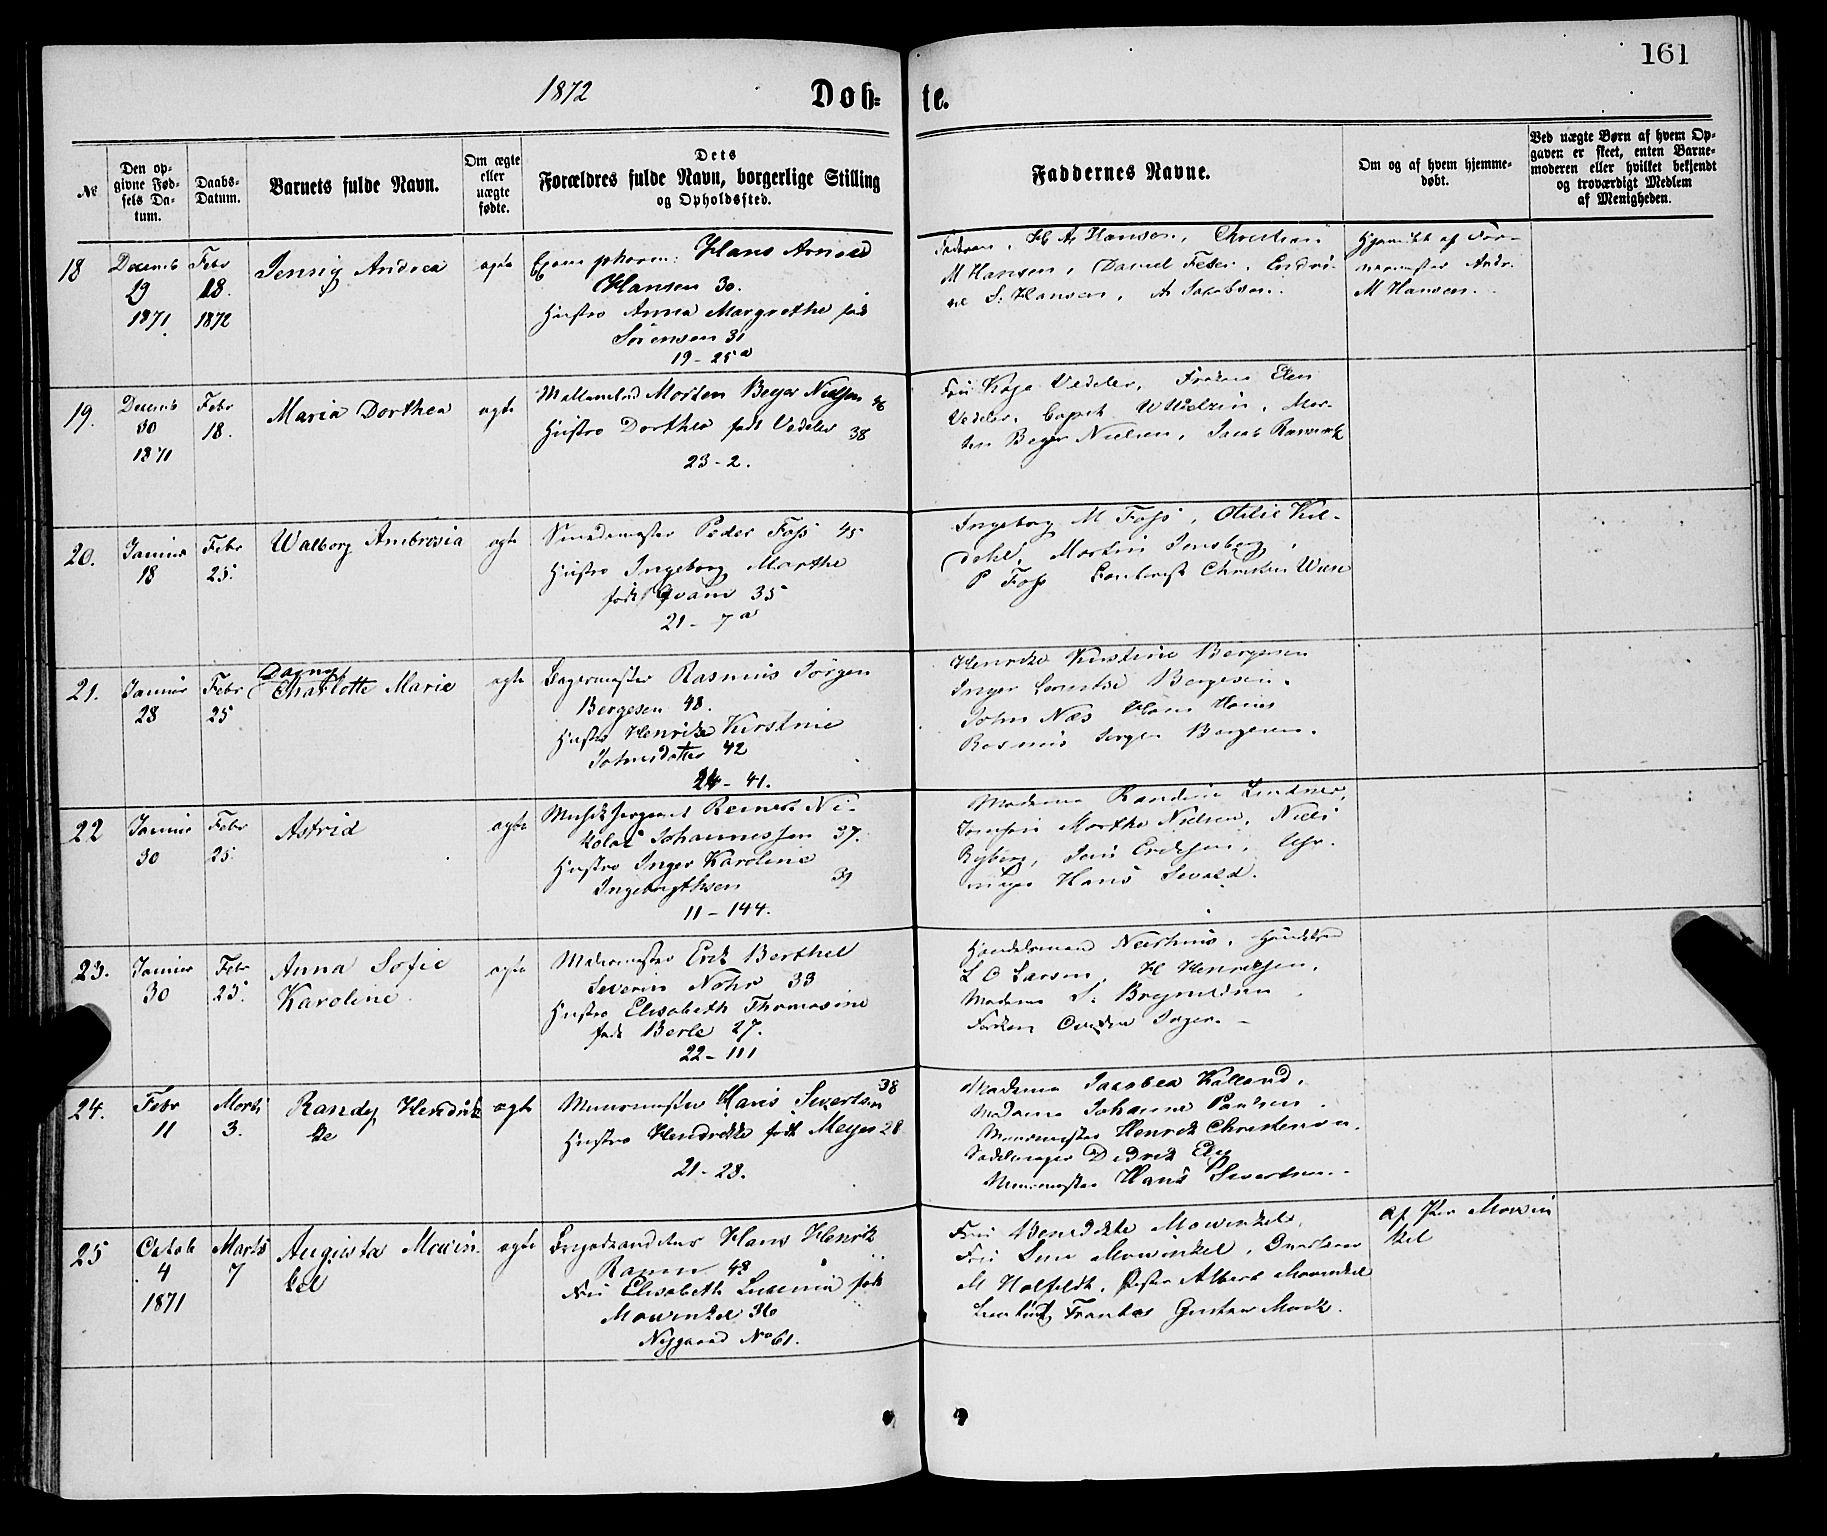 161
1872
Døb- te.
№
Den op-
givne Fød-
sels Da-
tum.
Daabs-
Datum.
Barnets fulde Navn.
Om ægte
eller
uægte
fødte.
Dets
Forældres fulde Navn, borgerlige Stilling
og Opholdssted.
Faddernes Navne.
Om og af hvem hjemme-
døbt.
Ved uægte Børn af hvem Op-
gaven er skeet, enten Barne-
moderen eller hvilket bekjendt
og troværdigt Medlem
af Menigheden.
18
Decemb
29
1871
Febr
18.
1872
Jensig Andrea
ægte
Exam pharm: Hans Arnold
Hansen 30.
Hustro Anna Margrethe født
Sörensen 31
19-25a
Faderen, H A Hansen, Christian
M Hansen, Daniel
S. Hansen, A Jacobsen.
Hjemdøbt af
Andr.
M Hansen.
19.
Decemb
30
1871
Febr
18.
Maria Dorthea
ægte
Morten Beyer Nielsen 46
Hustro Dorthea født Vedeler 38
23-2.
Fru Kaja Vedeler, Frøken Elen
Vedeler, Mor-
ten Beyer Nielsen, Jacob
20.
Januar
18
Febr
25.
Walborg Ambrosia
ægte
Smedemester Peder Foss 45
Hustro Ingeborg Marthe
født Qvam 35
21-7a
Ingeborg M Foss, Otilie
Martin Jensberg,
P Foss Christen
21.
Januar
28
Febr
25
Dagny
Charlotte Marie
ægte
Bagermester Rasmus Jörgen
Bergesen 48.
Hustro Henrike Kirstine
Johnsdatter 42
24-41.
Henrike Kirstine Bergesen
Inger Bergesen.
John Næs Hans
Rasmus Jørgen Bergesen.
22
Januar
30
Febr
25
Astrid
ægte
Reinert Ni-
kolai Johannessen 37.
Hustro Inger Karoline
Ingebrigthsen 31
11-144.
Madame Randine Lindner,
Marthe Nielsen, Niels
Jens Eriksen, Uhr-
mager Hans Sewald.
23.
Januar
30
Febr
25.
Anna Sofie
Karoline
ægte
Malermester Erik Berthel
Severin Nohr 33
Hustro Elisabeth Thomasine
født Berle 27.
22-111
Handelsmand
L O Larsen, H Henriksen,
Madame S.
Frøken
24.
Febr
11
Marts
3.
Randy Hendrik
ke
ægte
Muurmester Hans Sivertsen 38
Hustro Hendrikke født Meyer 28
21-28.
Madame Jacobea Kalland,
Madame Johanne Paulsen.
Muurmester Henrik Christensen,
Sadelmager Didrik
Muurmester Hans Sivertsen.
25
Octob
4
1871
Marts
7
Augusta Mowin-
kel
ægte
Hans Henrik
48
Fru Elisabeth født
Mowinkel 36
Nygaard No 61.
Fru Benedikte Mowinkel,
Fru Mowinkel,
M Holfeldt, Albert Mowinkel
Gustav
af Mowin
kel